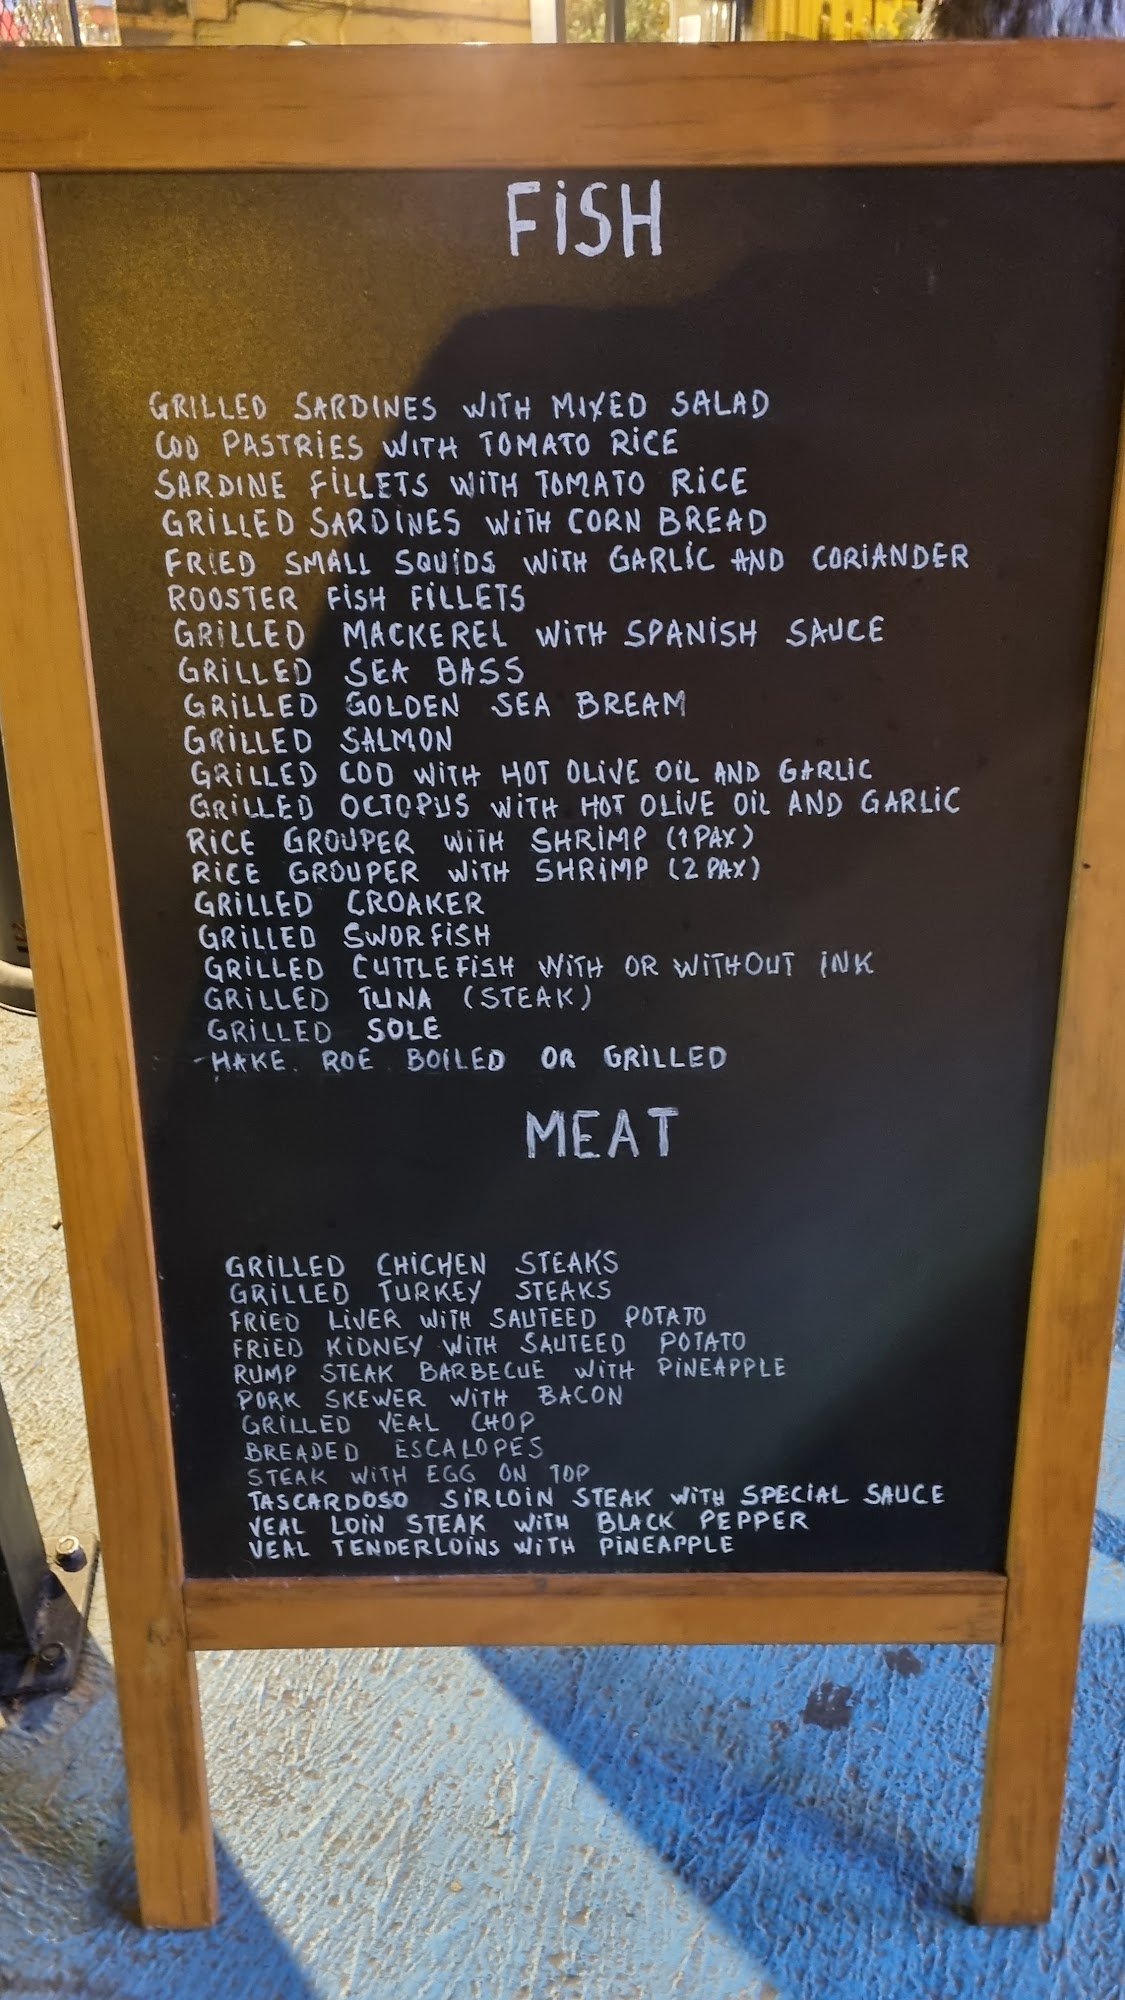 FiSH
GRILLED SARDINES WITH MIXED SALAD
COD PASTRIES WITH TOMATO RICE
SARDINE FILLETS WITH TOMATO RICE
GRILLED SARDINES WITH CORN BREAD
FRIED SMALL SQUIDS WITH GARLIC AND CORIANDER
ROOSTER FISH FILLETS
GRILLED MACKEREL WITH SPANISH SAUCE
GRILLED SEA BASS
GRILLED GOLDEN SEA BREAM
GRILLED SALMON
GRILLED COD WITH HOT OLIVE OIL AND GARLIC
GRILLED OCTOPUS WITH HOT OLIVE OIL AND GARLIC
RICE GROUPER WITH SHRIMP (1 PAX)
RICE GROUPER WITH SHRIMP (2 PAX)
GRILLED CROAKER
GRILLED SWORFISH
GRILLED CUTTLEFISH WITH OR WITHOUT INK
GRILLED TUNA (STEAK)
GRILLED SOLE
HAKE ROE BOILED OR GRILLED
MEAT
GRILLED CHICHEN STEAKS
GRILLED TURKEY STEAKS
FRIED LIVER WITH SAUTEED POTATO
FRIED KIDNEY WITH SAUTEED POTATO
RUMP STEAK BARBECUE WITH PINEAPPLE
PORK SKEWER WITH BACON
GRILLED VEAL CHOP
BREADED ESCALOPES
STEAK WITH EGG ON TOP
TASCARDOSO SIRLOIN STEAK WITH SPECIAL SAUCE
VEAL LOIN STEAK WITH BLACK PEPPER
VEAL TENDERLOINS WITH PINEAPPLE